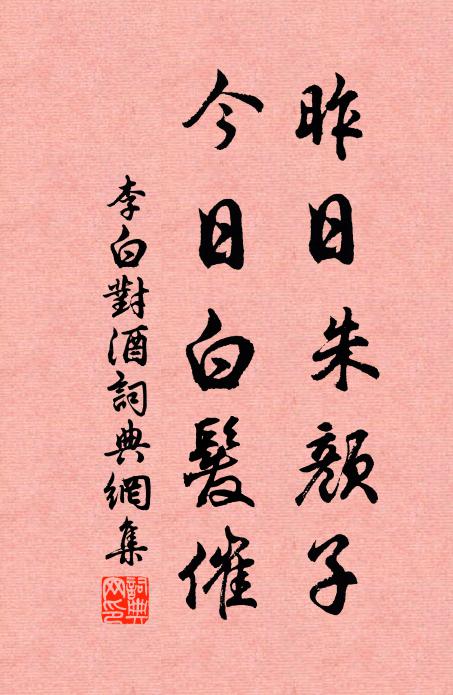 昨日朱顏子
今日白髮催
李白對酒詞典網集
詞典
网印